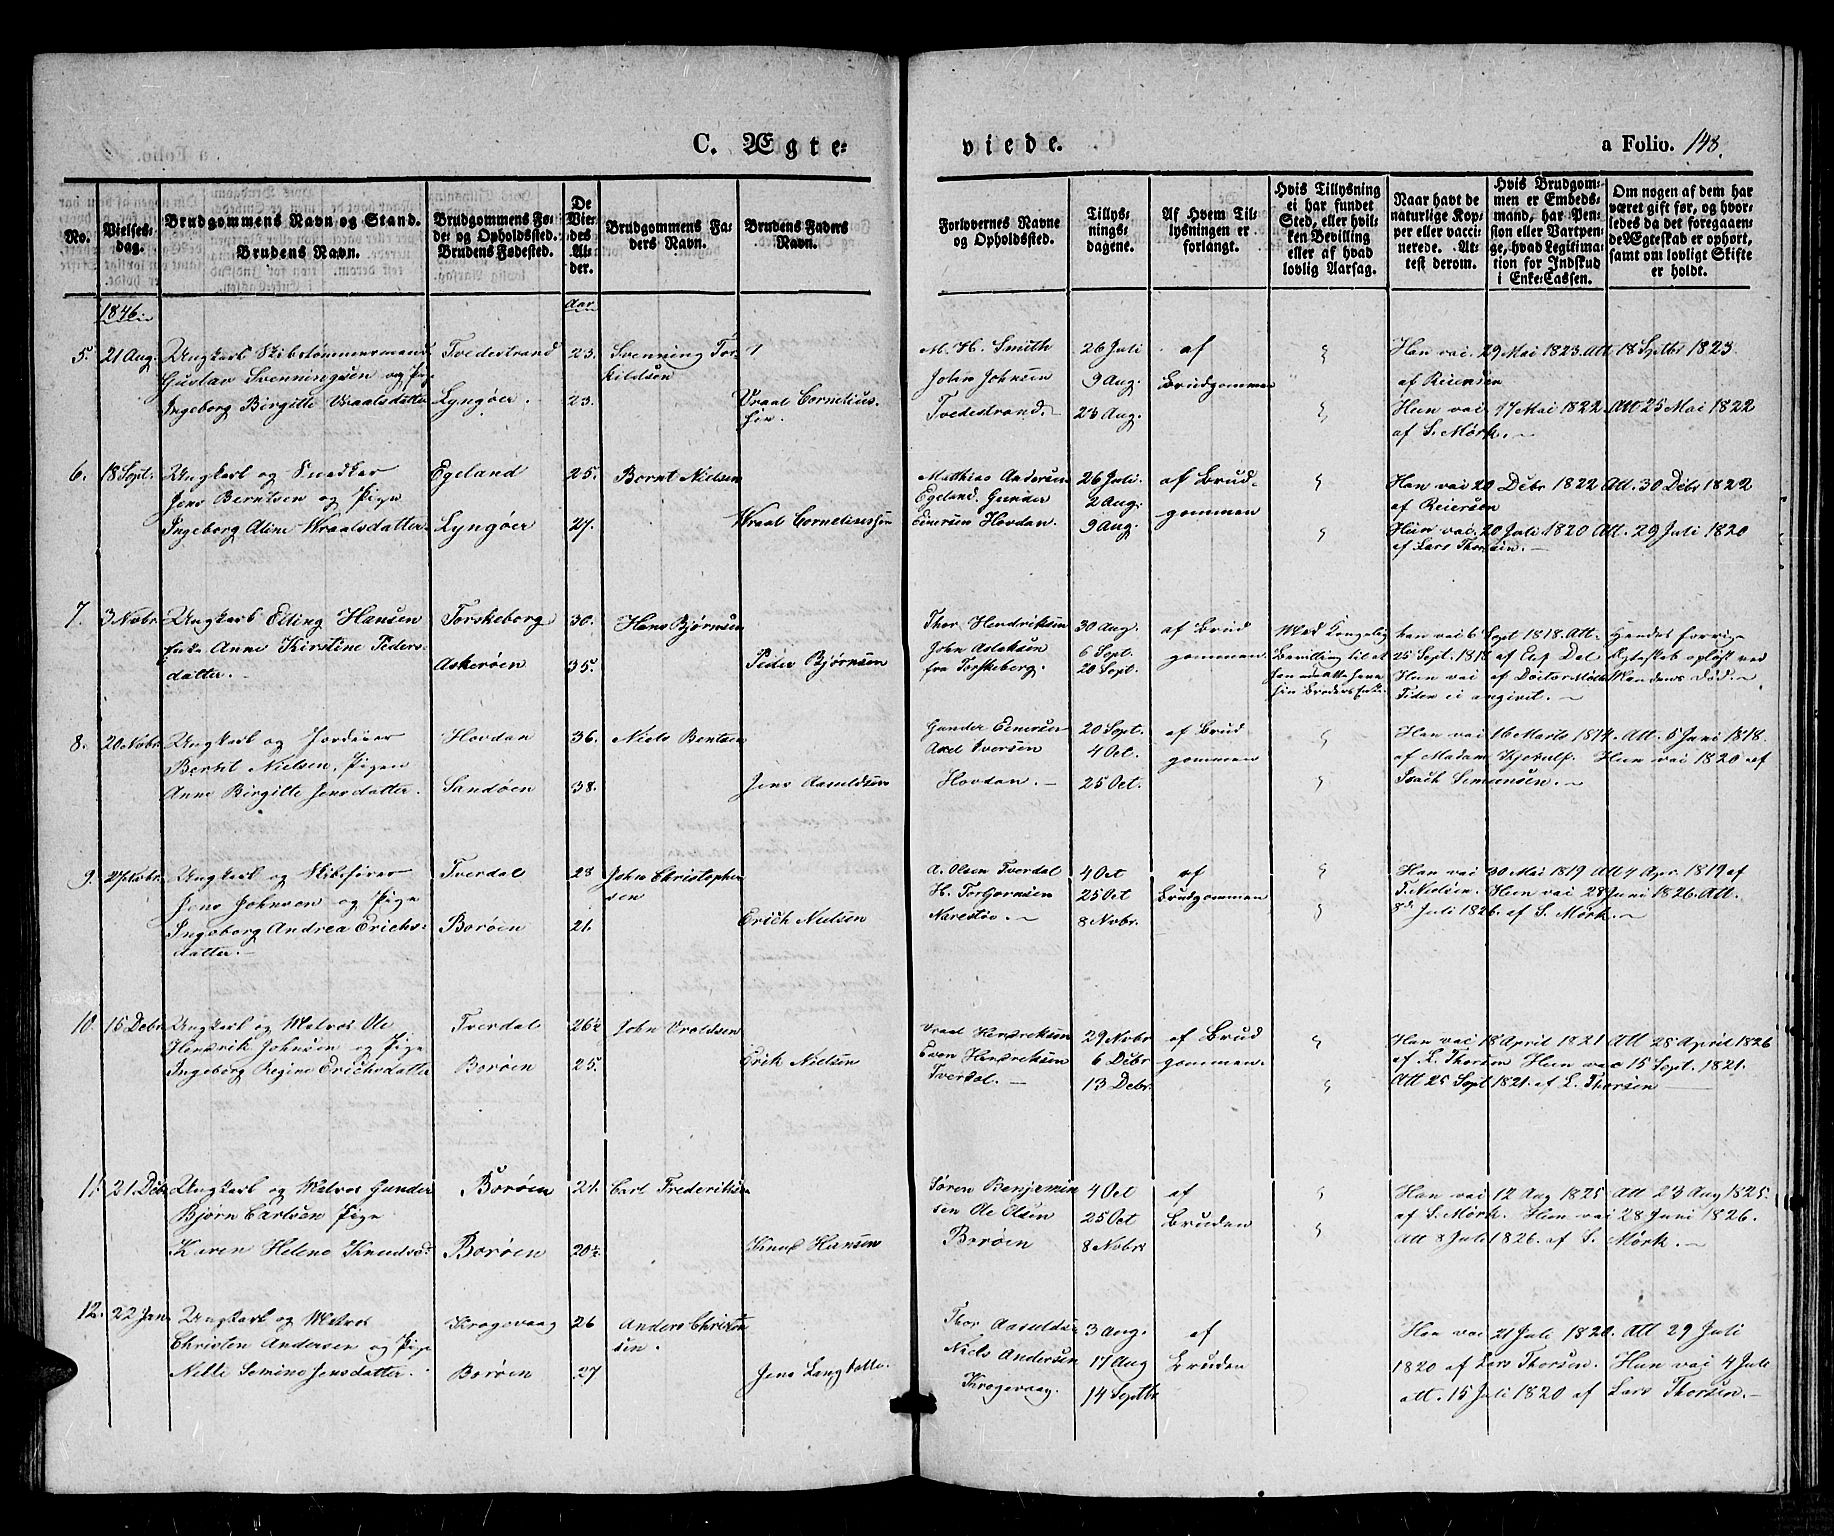 C. Ægte=
viede.
a Folio. 148.
No.
Vielses=
dag.
Brudgommens Navn og Stand.
Brudens Navn.
Brudgommens Fø=
de= og Opholdssted.
Brudens Fødested.
De
Vier=
des
Al=
der.
Brudgommens Fa=
ders Navn.
Brudens Faders
Navn.
Forlovernes Navne
og Opholdssted.
Tillys=
nings=
dagene.
Af Hvem Til=
lysningen er
forlangt.
Hvis Tillysning
ei har fundet
Sted, eller hvil=
ken Bevilling
eller af hvad
lovlig Aarsag.
Naar havt de
naturlige Kop=
per eller vacci=
nerede. At=
test derom.
Hvis Brudgom=
men er Embeds=
mand, har Pen=
sion eller Vartpen=
ge, hvad Legitima=
tion for Indskud
i Enke=Cassen.
Om nogen af dem har
været gift før, og hvor=
ledes da det foregaaen=
de Ægteskab er ophørt,
samt om lovligt Skifte
er holdt.
1846.
Aar
5. 21 Aug. Ungkarl Skibstømmermand Tvedestrand 23. Svenning Tor-
Gustav Svenningsen og Pige kildsen
Ingeborg Birgitte Vraalsdatter Lyngøer. 23. Vraal Cornelius-
M. H. Smith 26 Juli af Han vac. 29 Mai 1823. Att. 18 Septbr 1823.
John Johnsen 9 Aug. Brudgommen af Reiersen
Tvedestrand. 23 Aug. Hun vac 17 Mai 1822. Att 25 Mai 1822
af S. Mørk.
6. 18 Sept. Ungkarl og Snedker Egeland 25. Bernt Nielsen
Jens Berntsen og Pigen
Ingeborg Aline Vraalsdatter Lyngøer 27. Vraal Corneliussen
Matthias Andersen 26 Juli. af Brud- Han vac 20 Debr 1822 Att. 30 Debr 1822
Egeland. Gunder 2 Aug. gommen af Reiersen
Einersen Hovdan. 9 Aug. Hun vac. 20 Juli 1820 Att. 29 Juli 1820
af Lars Thorsen.
7. 3 Novbr Ungkarl Elling Hansen Torskeborg 30. Hans Bjørnsen
Enke Anne Kirstine Peders- Askerøen 35. Peder Bjørnsen
datter.
Thor Hendriksen 30 Aug. af Brud Med Kongelig han vac 6 Sept 1818. Att. Hendes forrige
John Aslaksen 6 Sept. gommen. Bevilling til at 25 Sept. 1818 af Dal Ægteskab opløst ved
fra Torskeberg. 20 Sept. Hun vac af Doctor Mandens Død.
Tiden ei angivet.
8. 20 Novbr. Ungkarl og Jordeier Hovdan 36. Niels Bentsen
Bertil Nielsen. Pigen
Anne Birgitte Jensdatter. Sandøen 38. Jens Aasuldsen
Gunder Einersen 20 Sept. af Brud Han vac 16 Marts 1814. Att. 5 Juni 1818.
Axel Iversen 4 Oct. gommen af Madam Hun vac 1820 af
Hovdan. 25 Oct. Isach Simonsen.
9. 27 Novbr. Ungkarl og Skibsfører Tverdal 28 John Christophersen
Jens Johnsen og Pige
Ingeborg Andrea Erichs- Borøen 21. Erich Nielsen
datter.
A. Olsen Tverdal 4 Oct af Han vac 30 Mai 1819 Att 4 Apr. 1819 af
H. Torgersen 25 Oct Brudgommen Nielsen. Hun vac 28 Juni 1826. Att.
Narestø. 8 Nobr. 8d. Juli 1826. af S. Mørk.
10. 15 Debr Ungkarl og Matros Ole Tverdal 26½ John Vraldsen
Hendrik Johnsen og Pige
Ingeborg Regine Erichsdatter Borøen 25. Erik Nielsen
Vraal Hendriksen 29 Nobr af Brud Han vac 18 April 1821 Att 28 April 1826
Even Hendriksen 6 Debr gommen. af L. Thorsen Hun vac 15 Sept. 1821.
Tverdal. 13 Debr. Att 25 Sept 1821. af L. Thorsen
11. 21 Debr Ungkarl og Matros Gunder Borøen 21. Carl Frederiksen
Bjørn Carlsen Pige
Karen Helene Knudsd Borøen 20½ Knud Hansen
Søren Benjamin 4 Oct af Han vac 12 Aug 1825 Att 23 Aug 1825.
sen Ole Olsen 25 Oct Bruden af S. Mørk. Hun vac 28 Juni 1826.
Borøen 8 Nobr Att 8 Juli 1826. af S. Mørk.
12. 22 Jan. Ungkarl og Matros Krogevaag 26 Anders Christen
Christen Andersen og Pige sen.
Nille Semine Jensdatter. Borøen 27 Jens Langbotte
Thor Aasuldsen 3 Aug. af Han vac 21 Juli 1820. Att 29 Juli
Niels Andersen 17 Aug Bruden 1820 af Lars Thorsen. Hun vac 4 Juli
Krogevaag. 14 Septbr att. 15 Juli 1820 af Lars Thorsen.